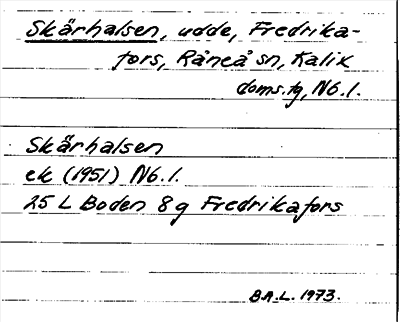 Skärhalsen, udde, Fredrika-
fors, Råneå sn, Kalix
doms.tg, Nb.l.
Skärhalsen
ek (1951) Nb.l.
25 L Boden 8g Fredrikafors
B.A.L. 1973.